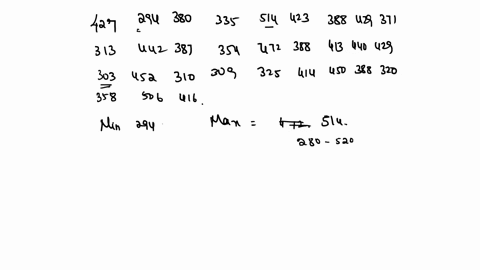 427 294 380 335 514 423 388 429 371
313 442 387 354 472 388 413 440 429
303 452 310 309 325 414 450 388 320
358 506 416.
Min 294 Max = 514.
280 - 520